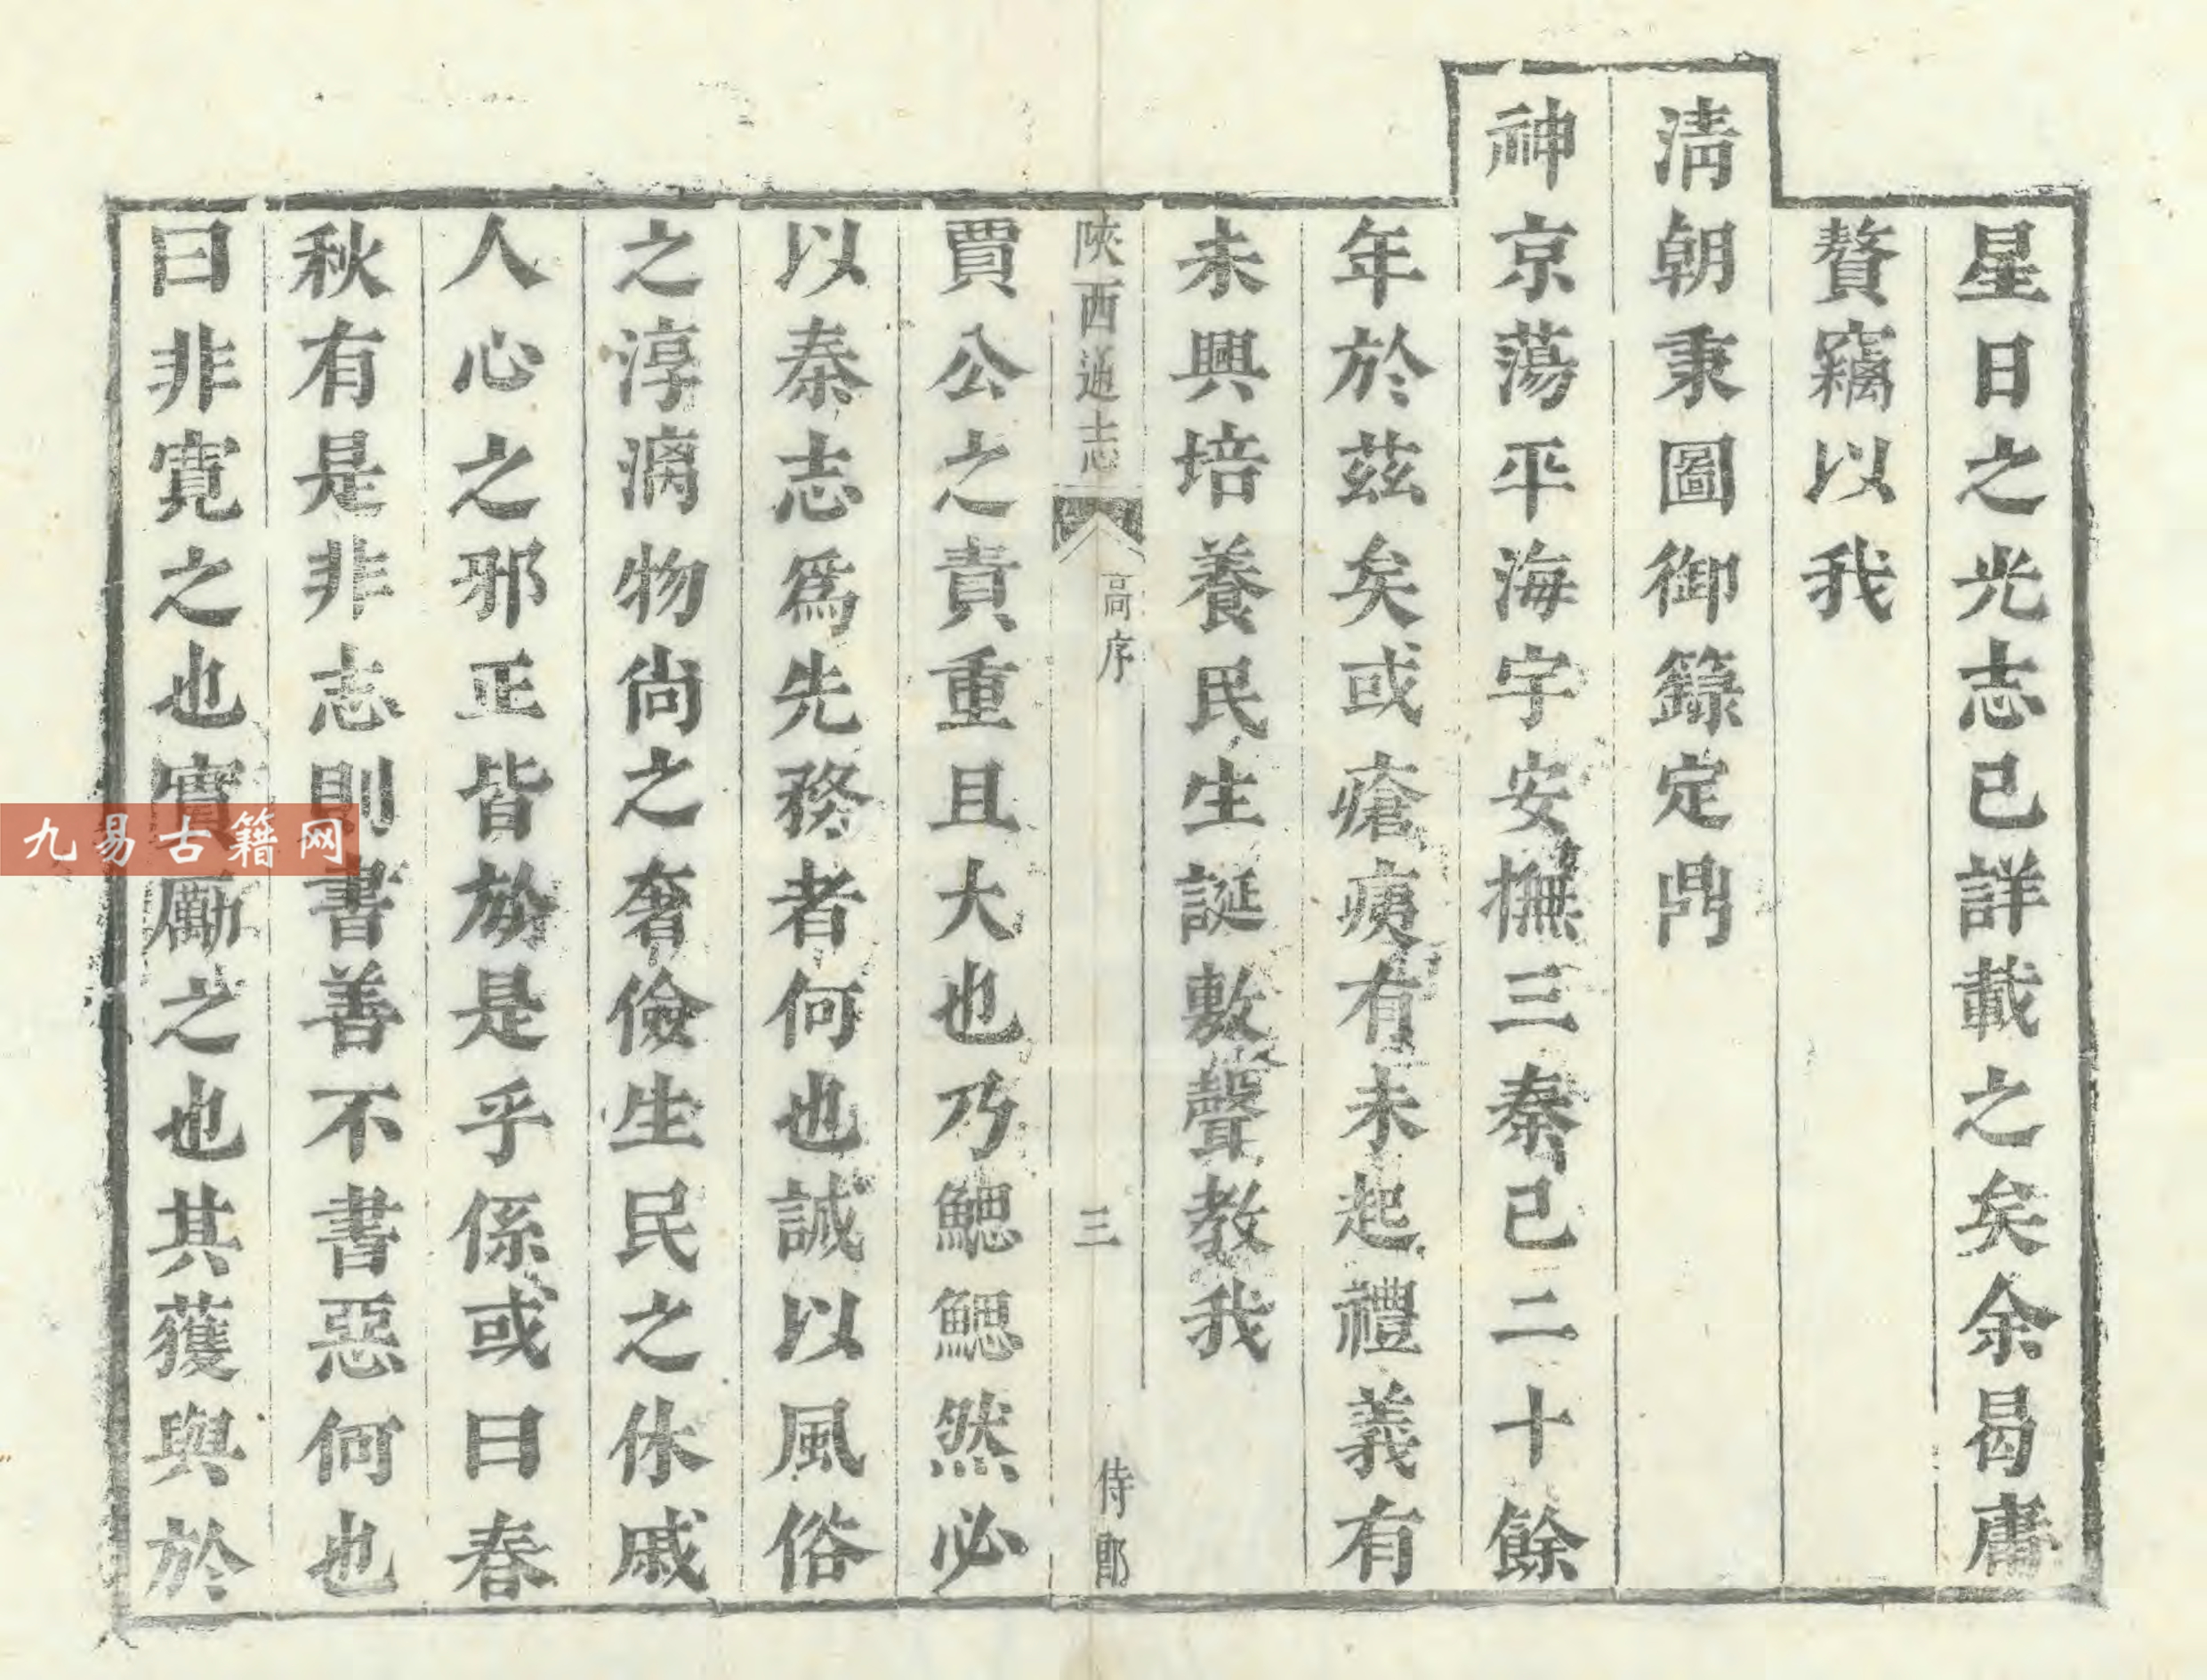 星日之光志已詳載之矣余曷庸
贅竊以我
清朝秉圖御籙定鼎
神京蕩平海宇安撫三秦已二十餘
年於茲矣或瘡痍有未起禮義有
未興培養民生誕敷聲教我
陝西通志
高序
三
侍郎
賈公之責重且大也乃鰓鰓然必
以秦志爲先務者何也誠以風俗
之淳漓物尚之奢儉生民之休戚
人心之邪正皆於是乎係或曰春
秋有是非志則書善不書惡何也
曰非寬之也實勵之也其獲與於
九易古籍网